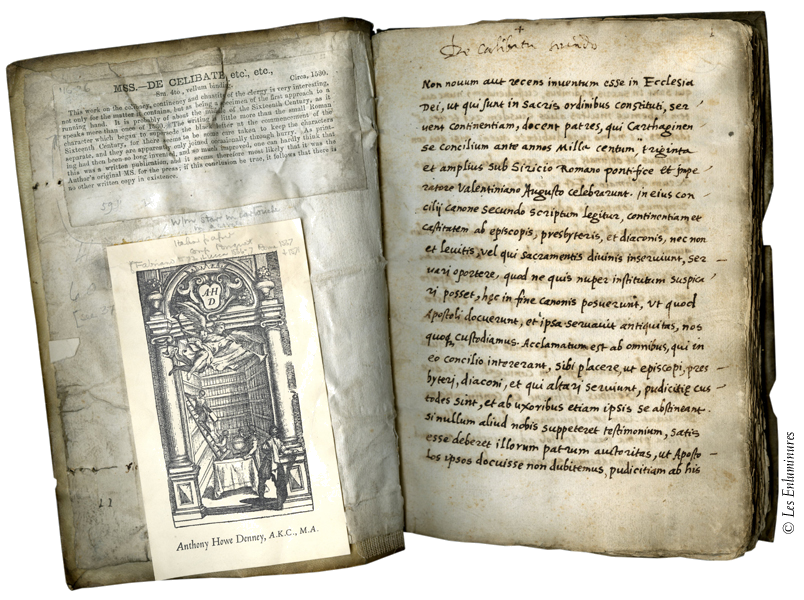 MSS.—DE CELIBATE, etc., etc.,
Sm. 4to., vellum binding. Circa, 1530.
This work on the celibacy, continency and chastity of the clergy is very interesting,
not only for the matter it contains, but as being a specimen of the first approach to a
running hand. It is probably of about the of the Sixteenth Century, as it
speaks more than once of The writing is little more than the small Roman
character which began to supersede the black letter at the commencement of the
Sixteenth Century, for there seems to be some care taken to keep the characters
separate, and they are apparently only joined occasionally through hurry. As print-
ing had then been so long invented, and so much improved, one can hardly think that
this was a written publication, and it seems therefore most likely that it was the
Author's original MS. for the press; if this conclusion be true, it follows that there is
no other written copy in existence.
Italian paper
AH
D
Anthony Howe Denney, A.K.C., M.A.
De Calibatu
Non novum aut recens inventum esse in Ecclesia
Dei, ut qui sunt in Sacris ordinibus constituti, ser
vent continentiam, docent patres, qui Carthaginen
se Concilium ante annos Mille centum, triginta
et amplius sub Siricio Romano pontifice et Impe
ratore Valentiniano Augusto celebrarunt. In eius con
cilij canone Secundo scriptum legitur, continentiam et
castitatem ab episcopis, presbyteris, et diaconis, nec non
et levitis, vel qui sacramentis divinis inserviunt, ser
vari oportere, quod ne quis nuper institutum suspica
ri posset, hęc in fine canonis posuerunt, Ut quod
Apostoli docuerunt, et ipsa servavit antiquitas, nos
quoq; custodiamus. Acclamatum est ab omnibus, qui in
eo concilio intererant, sibi placere, ut episcopi, pres
byteri, diaconi, et qui altari serviunt, pudicitię cus
todes sint, et ab uxoribus etiam ipsis se abstineant.
Si nullum aliud nobis suppeteret testimonium, satis
esse deberet illorum patrum auctoritas, ut Aposto
los ipsos docuisse non dubitemus, pudicitiam ab his
© Les Enluminures